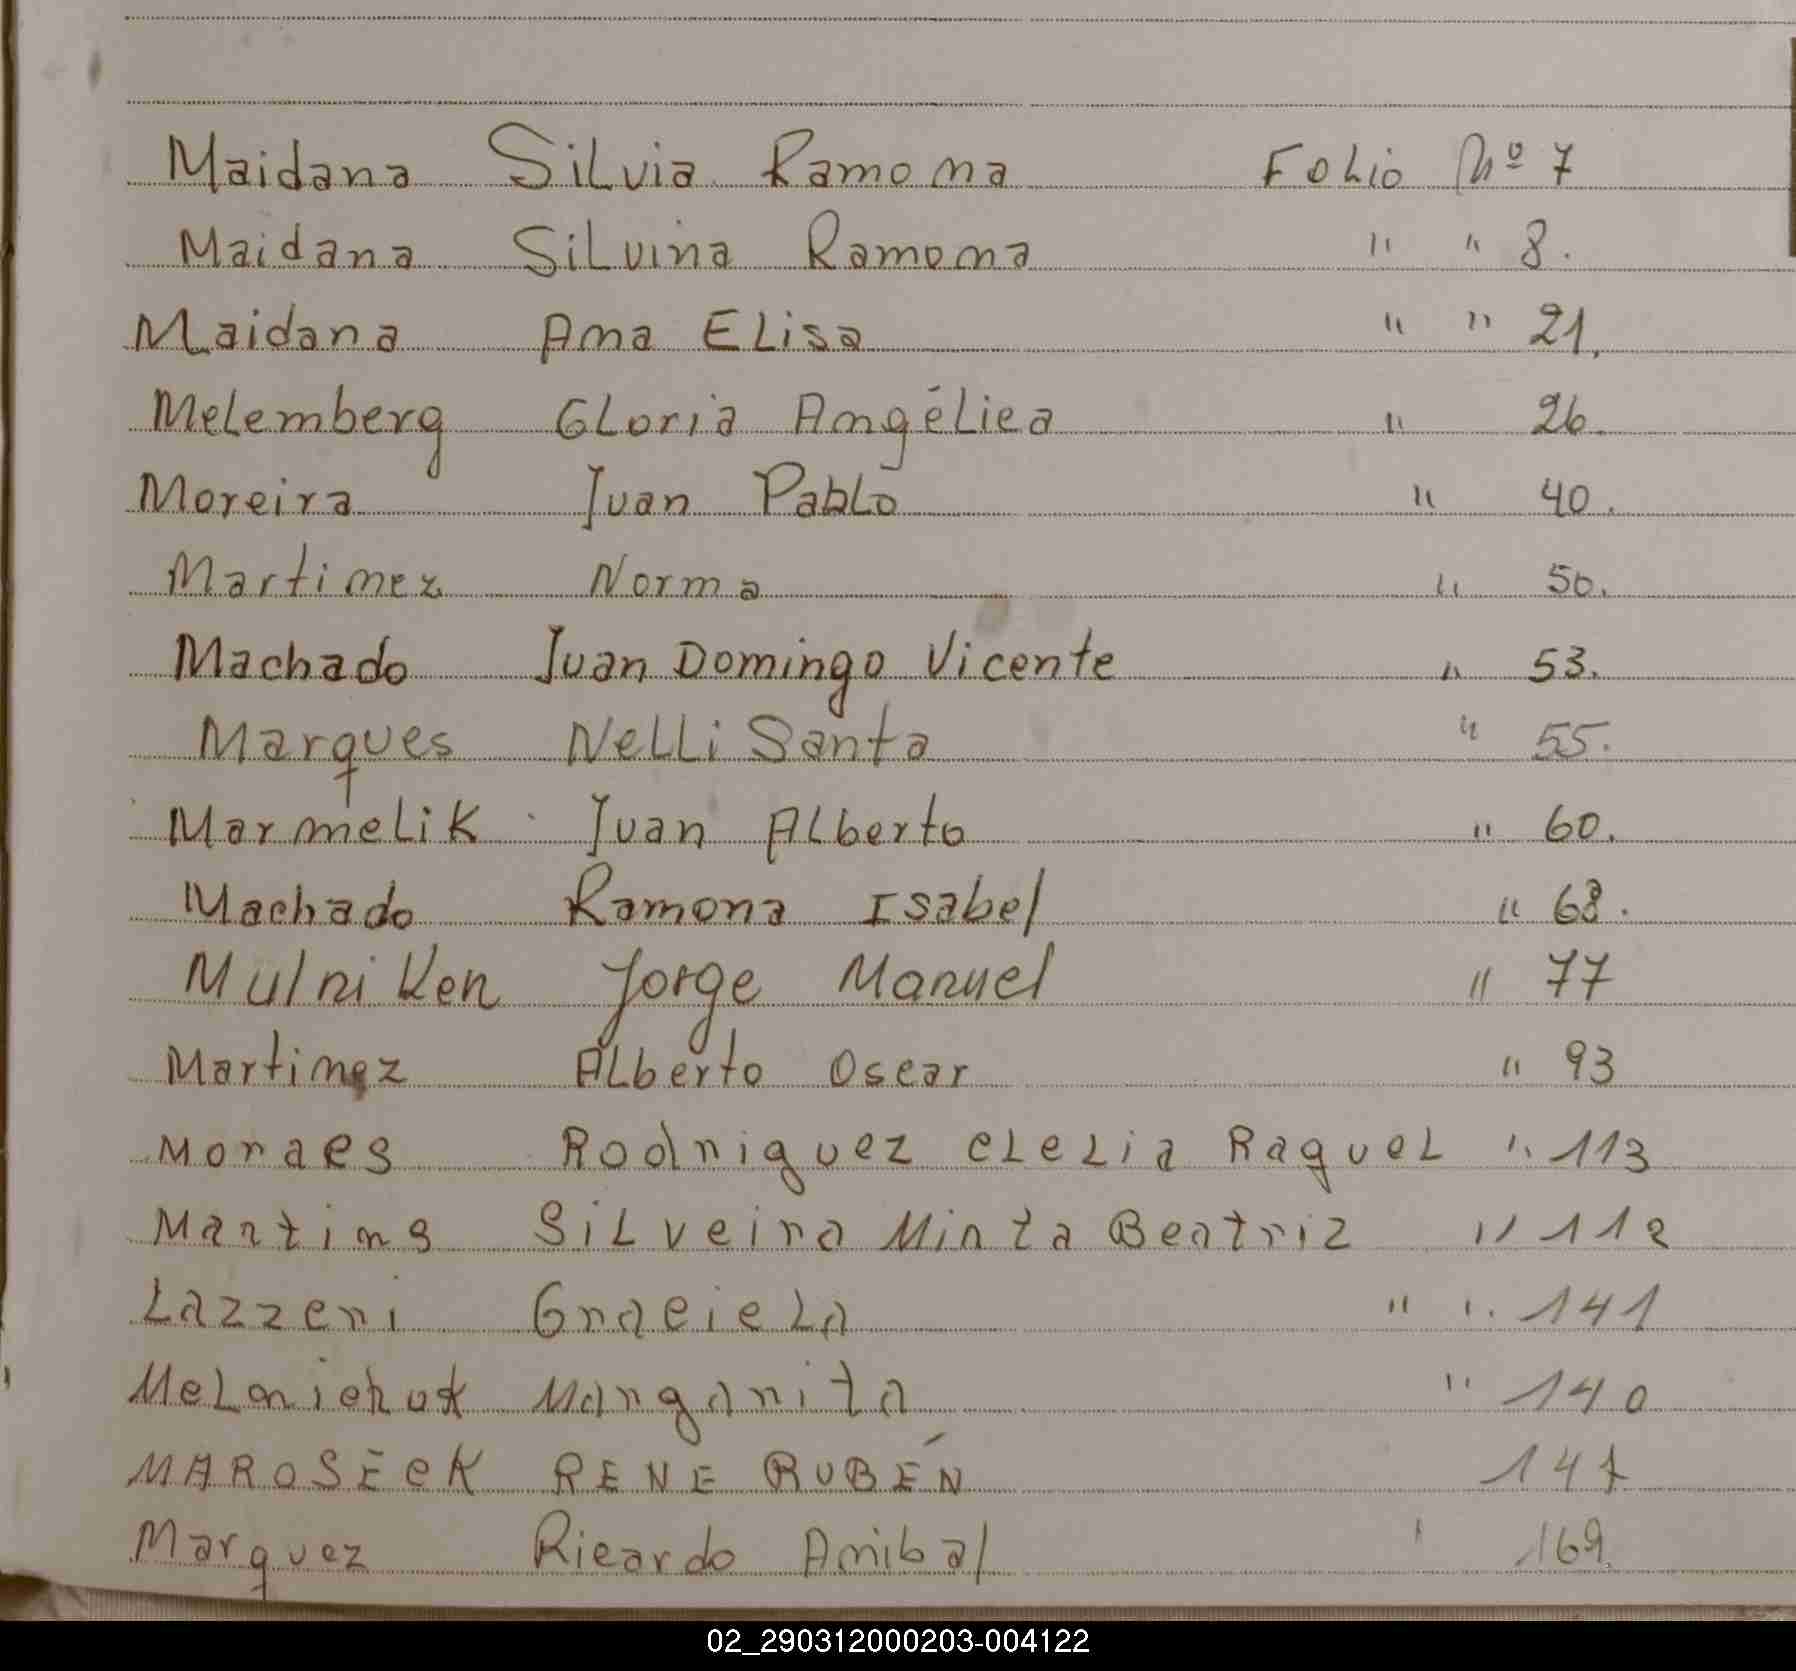 Maidana Silvia Ramona Folio Nº 7
Maidana Silvina Ramona " " 8.
Maidana Ana Elisa " " 21.
Melemberg Gloria Angélica " 26.
Moreira Juan Pablo " 40.
Martinez Norma " 50.
Machado Juan Domingo Vicente " 53.
Marques Nelli Santa " 55.
Marmelik Juan Alberto " 60.
Machado Ramona Isabel " 68.
Mulniken Jorge Manuel " 77
Martinez Alberto Oscar " 93
Moraes Rodriguez Clelia Raquel " 113
Martins Silveira Mirta Beatriz " 112
Lazzeri Graciela " " 141
Melnichuk Margarita " 140
MAROSECK RENE RUBÉN 147
Marquez Ricardo Anibal " 169.
02_290312000203-004122